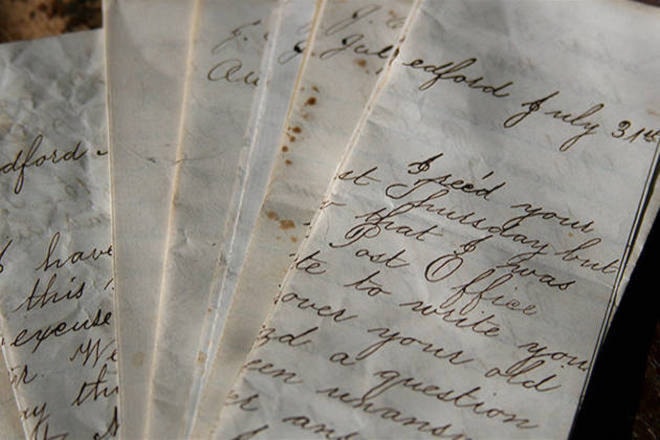 dford
I have
this
excuse
r. We
J.
Au
J.
Jul
edford July 31st
I rec'd your
st Thursday but
that I was
Post Office
te to write you
over your old
a question
een unansw